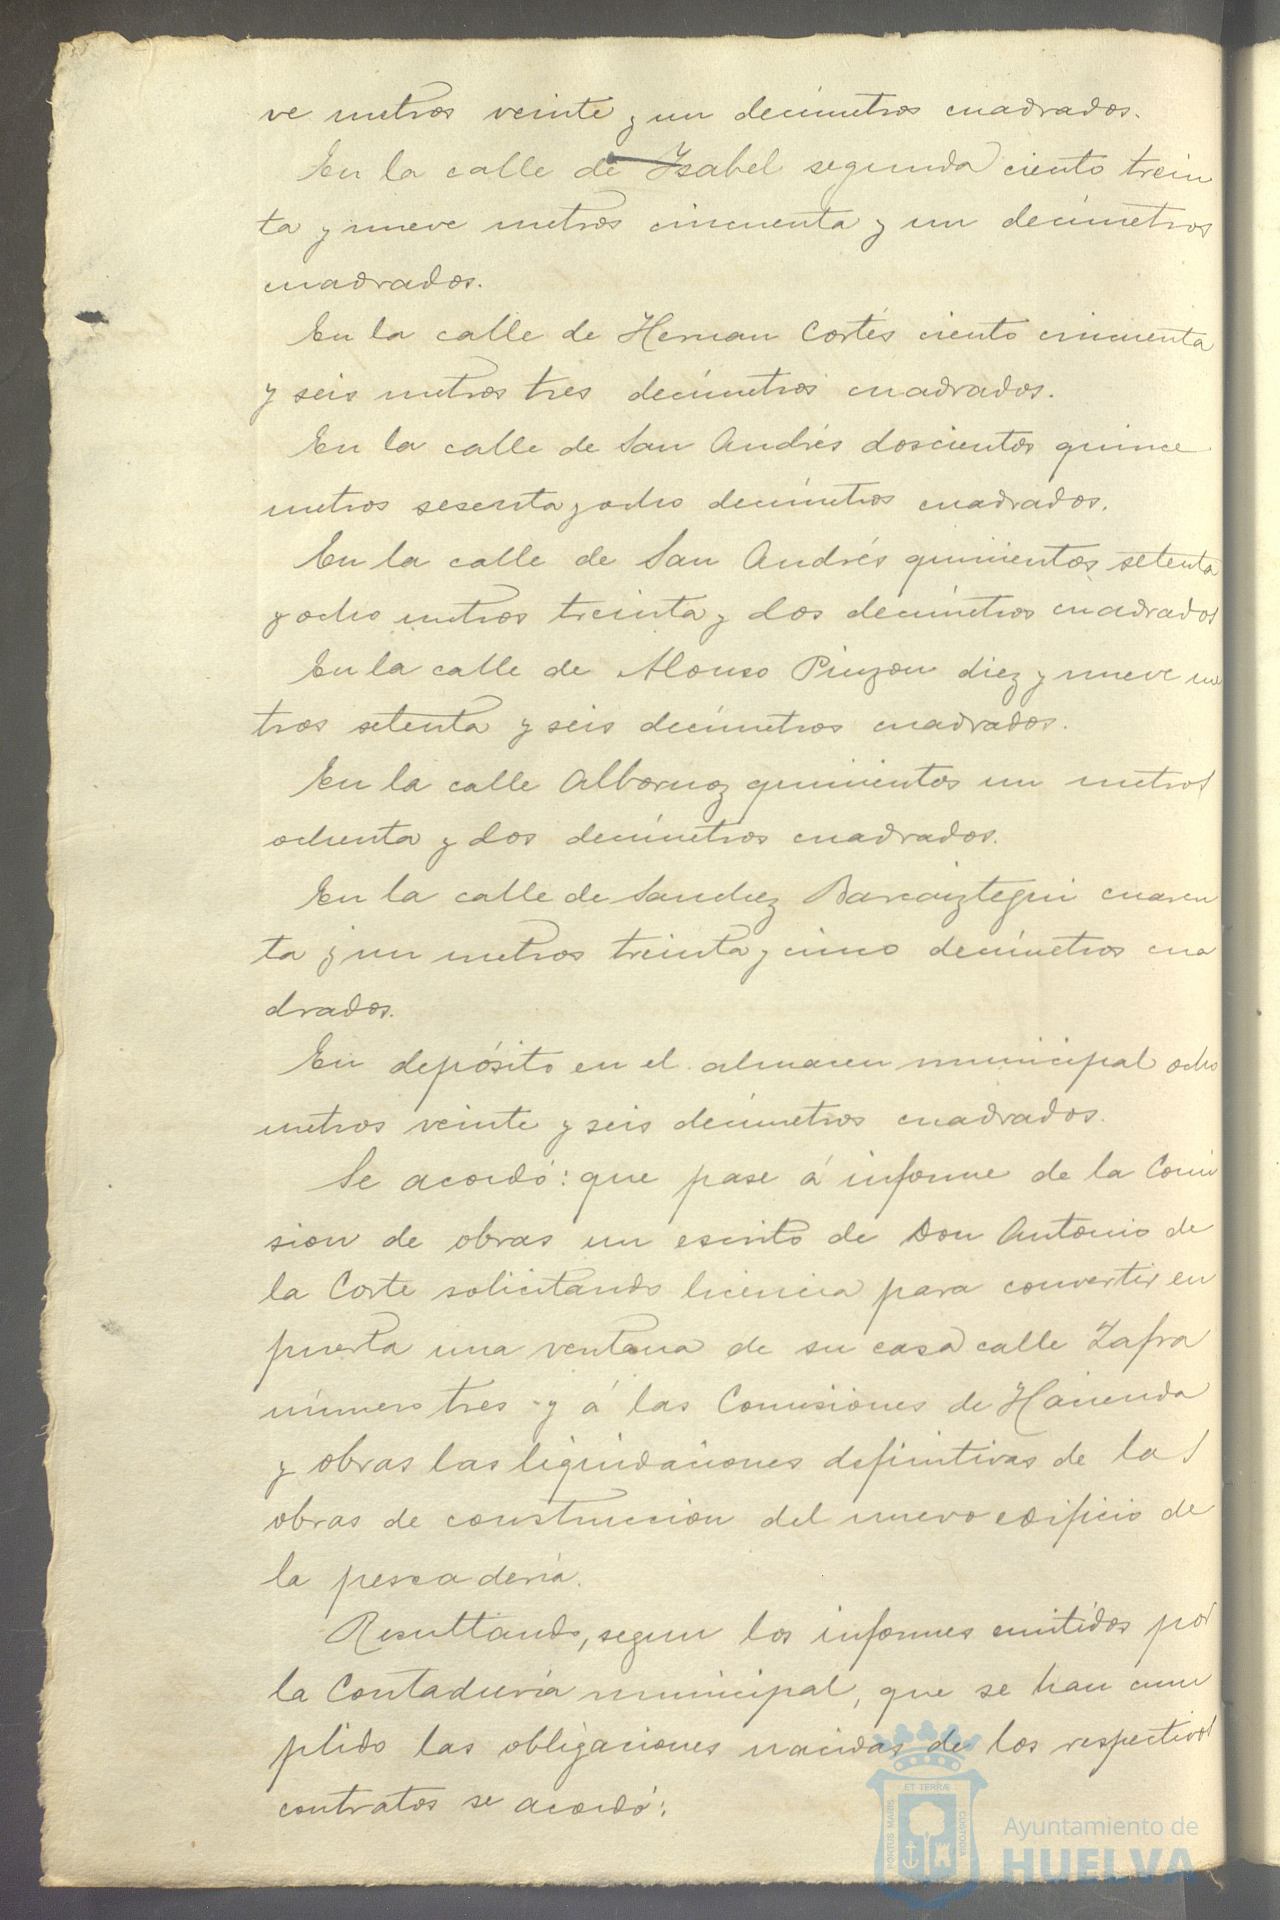 ve metros veinte y un decimetros cuadrados.
En la calle de Isabel segunda ciento trein
ta y nueve metros cincuenta y un decimetros
cuadrados.
En la calle de Hernan Cortés ciento cincuenta
y seis metros tres decímetros cuadrados.
En la calle de San Andrés doscientos quince
metros sesenta y ocho decímetros cuadrados.
En la calle de San Andrés quinientos setenta
y ocho metros treinta y dos decímetros cuadrados
En la calle de Alonso Pinzon diez y nueve me
tros setenta y seis decímetros cuadrados.
En la calle Albornoz quinientos un metros
ochenta y dos decímetros cuadrados.
En la calle de Sanchez Barcaiztegui cuaren
ta y un metros treinta y cinco decímetros cua
drados.
En depósito en el almacen municipal ocho
metros veinte y seis decimetros cuadrados.
Se acordó: que pase á informe de la Comi
sion de obras un escrito de Don Antonio de
la Corte solicitando licencia para convertir en
puerta una ventana de su casa calle Zafra
número tres y á las Comisiones de Hacienda
y obras las liquidaciones definitivas de las
obras de construccion del nuevo edificio de
la pescadería.
Resultando, segun los informes emitidos por
la Contaduría municipal, que se han cum
plido las obligaciones nacidas de los respectivos
contratos se acordó:
PORTUS MARIS ET TERRÆ CUSTODIA
Ayuntamiento de
HUELVA